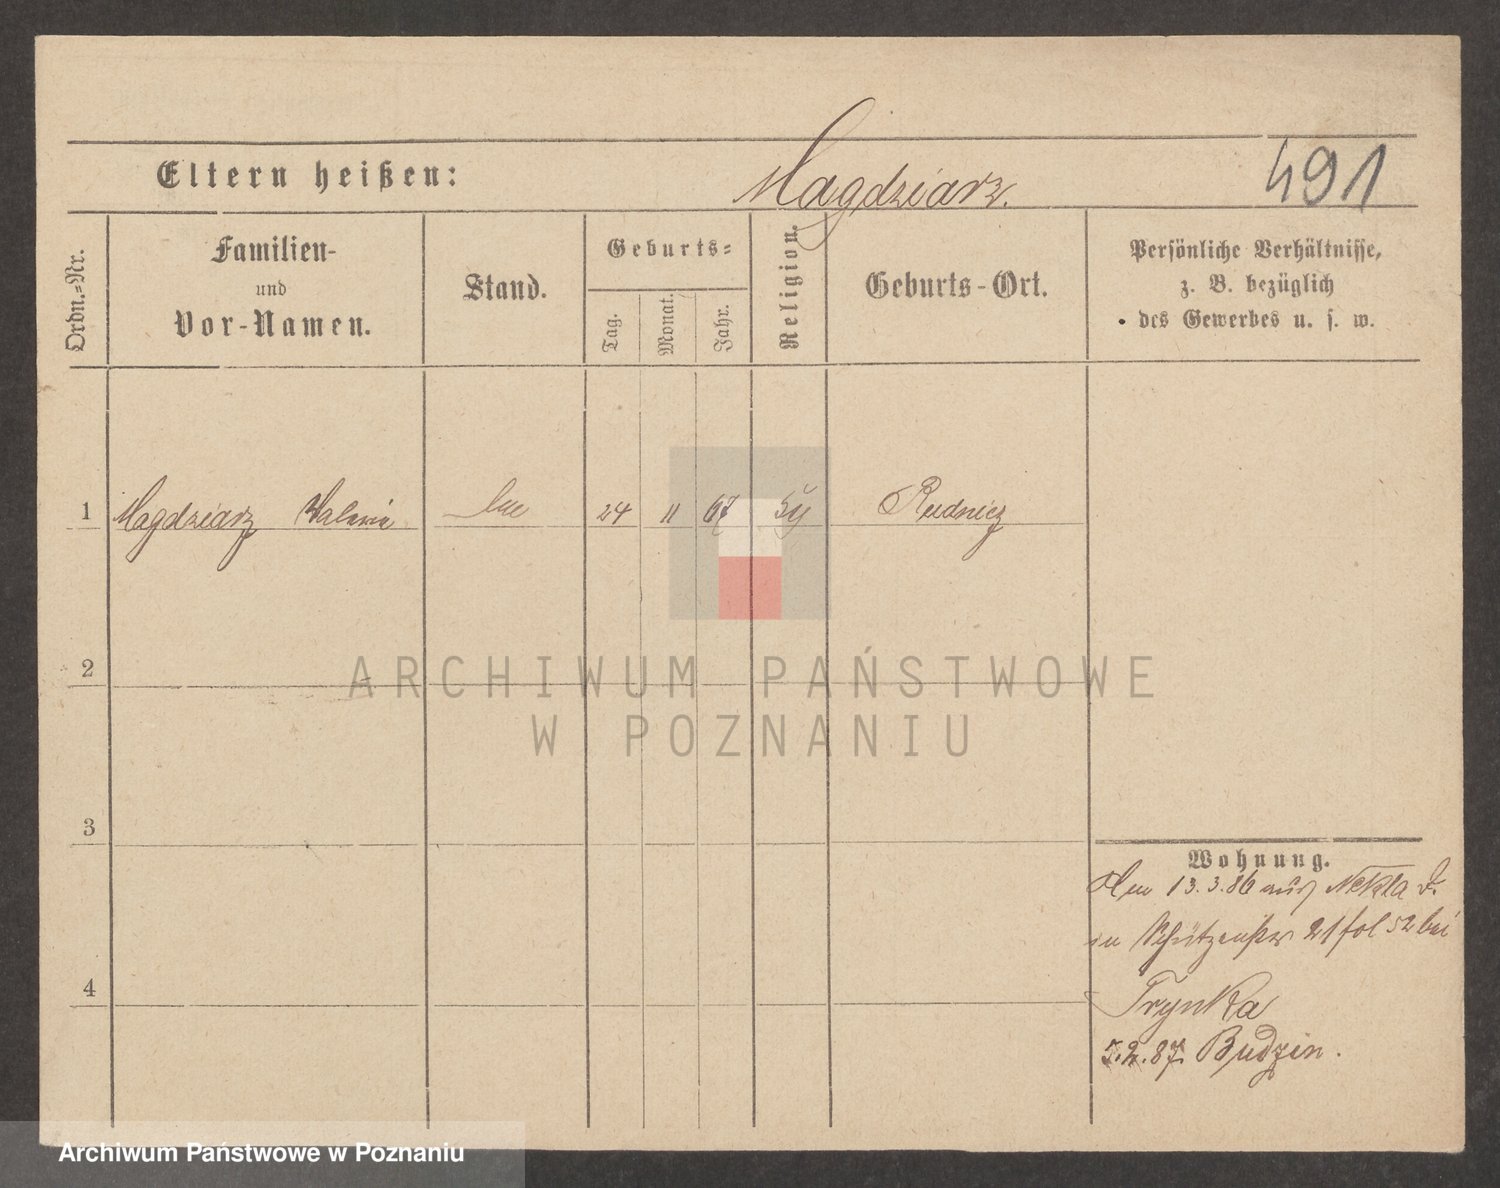 Eltern heißen: Magdziarz. 491
Ordn.-Nr.
Familien-
und
Vor-Namen.
Stand.
Geburts-
Tag.
Monat.
Jahr.
Religion.
Geburts-Ort.
Persönliche Verhältnisse,
z. B. bezüglich
des Gewerbes u. s. w.
1 Magdziarz Valerie 24 11 67 Rudnicz
2
ARCHIWUM PAŃSTWOWE
W POZNANIU
3
Wohnung.
13.3.86 aus Nekla
in Schützenstr 21 fol 52 bei
4
Trynka
5.2.87. Budzin.
Archiwum Państwowe w Poznaniu